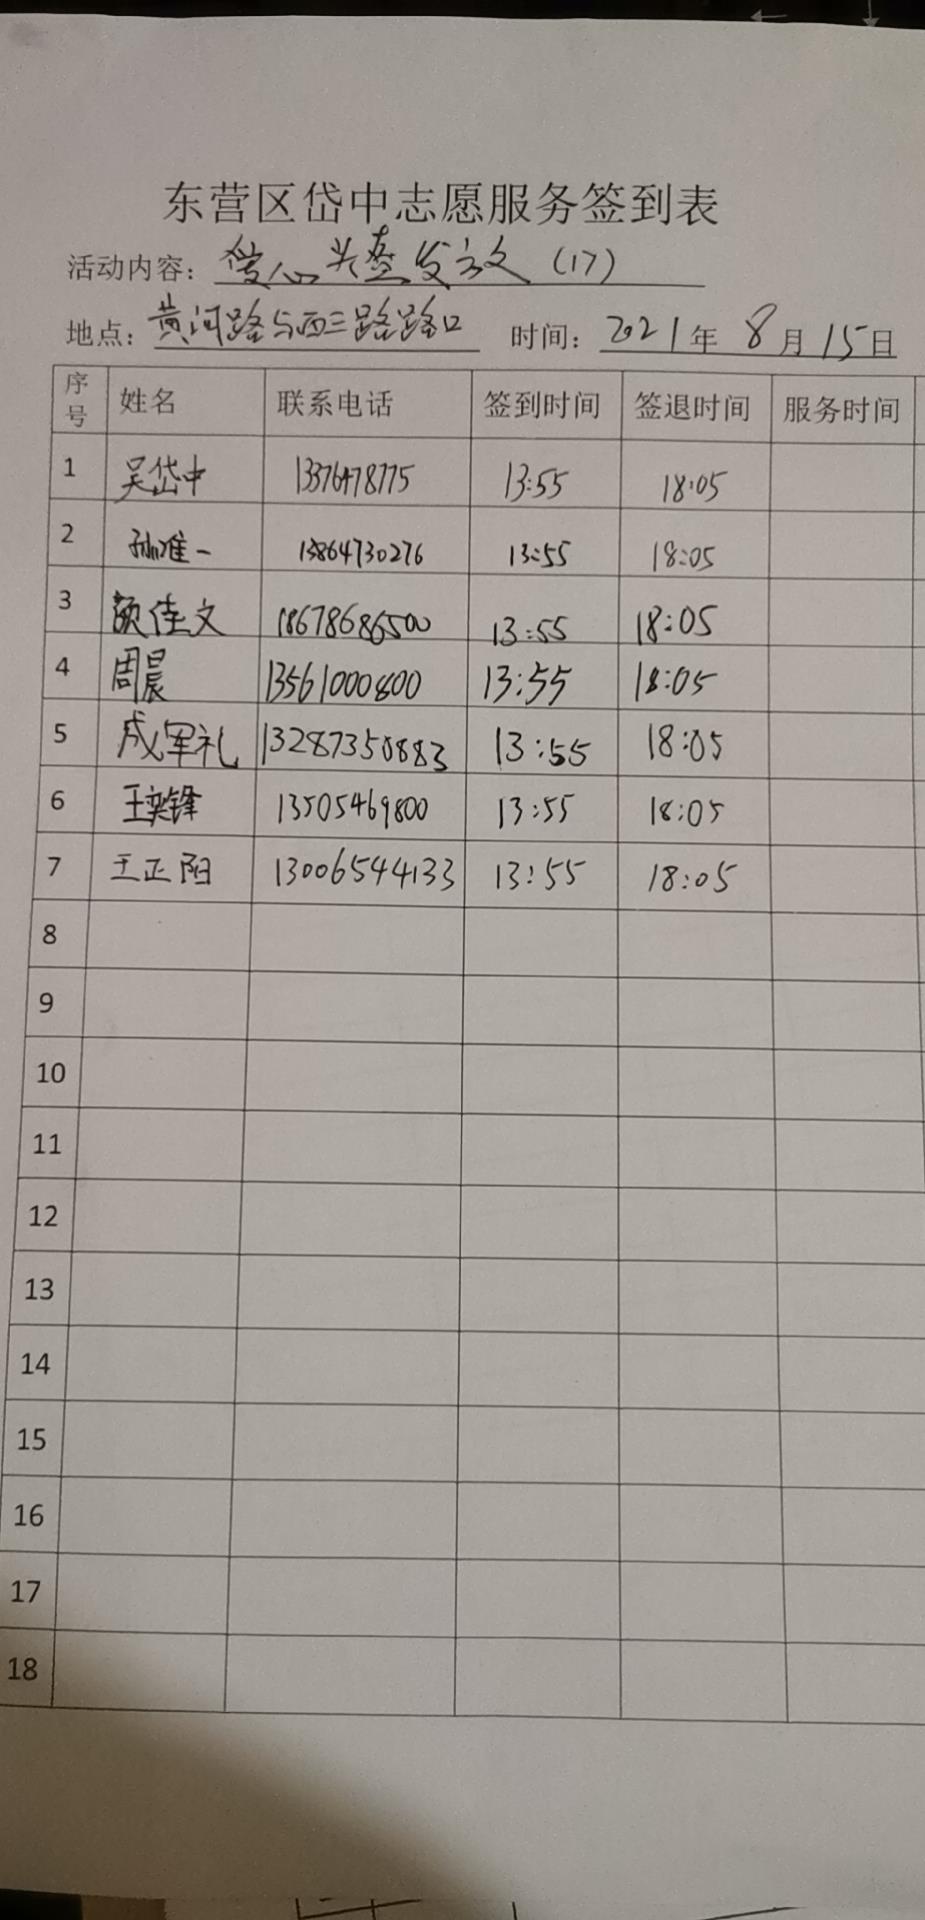 东营区岱中志愿服务签到表
活动内容：爱心头盔发放（17）
地点：黄河路与西三路路口 时间：2021年8月15日
序号 姓名 联系电话 签到时间 签退时间 服务时间
1 吴岱中 13:55 18:05
2 13864730276 13:55 18:05
3 颜佳文 18678686500 13:55 18:05
4 周晨 13561000800 13:55 18:05
5 成军礼 13287350883 13:55 18:05
6 王奕锋 13505469800 13:55 18:05
7 王正阳 13006544133 13:55 18:05
8
9
10
11
12
13
14
15
16
17
18